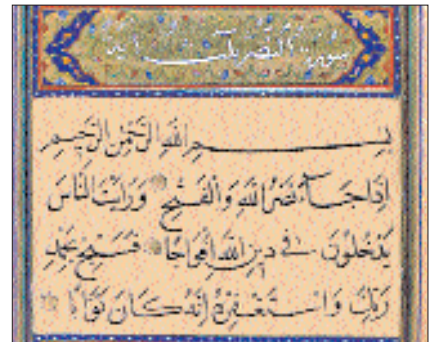 سورة النصر ثلث آيات
بسم الله الرحمن الرحيم
اذا جاء نصر الله والفتح ورايت الناس
يدخلون في دين الله افواجا فسبح بحمد
ربك واستغفره انه كان توابا